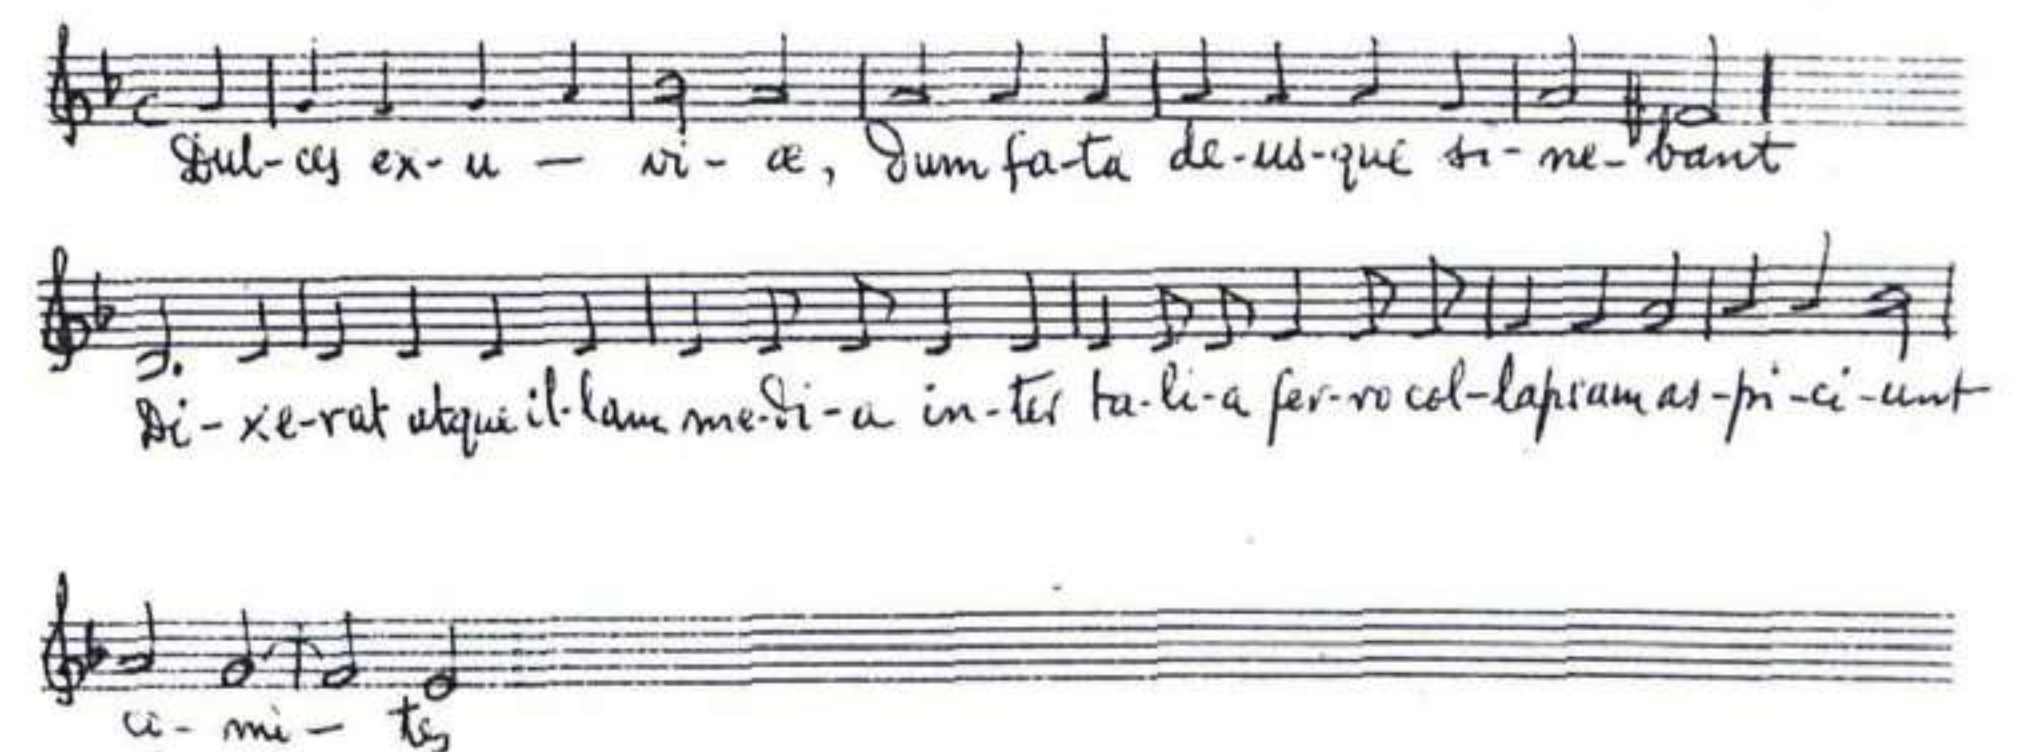 Dul-ces ex-u — vi- æ, Dum fa-ta de-us-que si- ne- bant
Di-xe-rat atque il-lam me-di-a in-ter ta-li-a fer-ro col-lapsam as-pi-ci-unt
ci- mi- tes